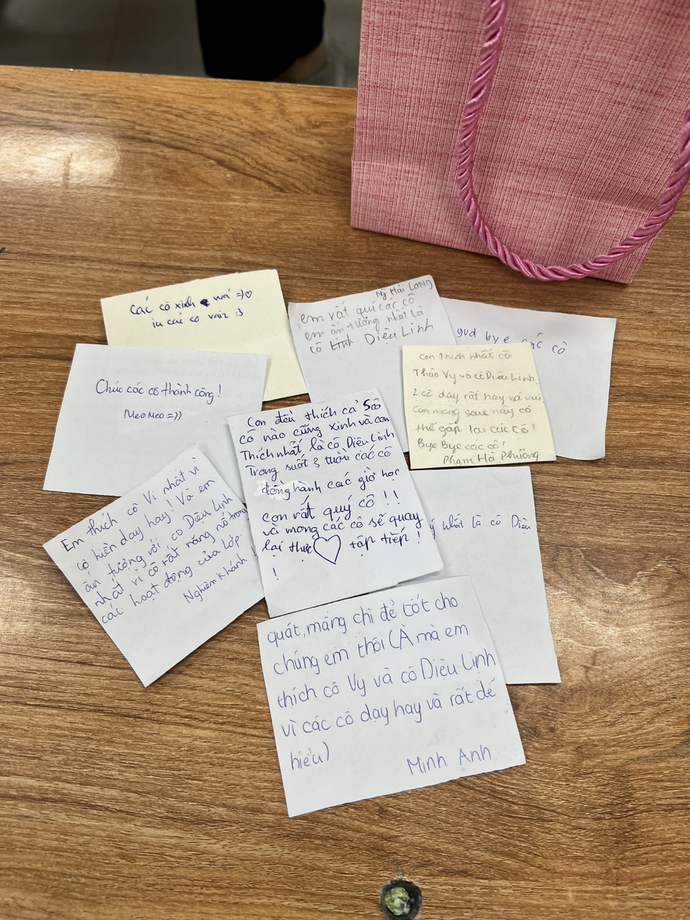 Các cô xinh wá =)♡
iu các cô vaiz :3
Ng Hải LONG
em rất quí các cô
em ấn tượng nhất là
cô Diệu Linh
gud bye các cô
con thích nhất cô
Thảo Vy và cô Diệu Linh.
2 cô dạy rất hay và vui
Con mong sau này có
thể gặp lại các cô!
Bye Bye các cô!
Phạm Hà Phương
Chúc các cô thành công!
Meo Meo =))
Con đều thích cả 5 cô
cô nào cũng xinh và con
Thích nhất là cô Diệu Linh
Trong suốt 3 tuần các cô
đồng hành các giờ học
con rất quý cô !!
và mong các cô sẽ quay
lại thực ♡ tập tiếp !
!
Em thích cô Vi nhất vì
cô hiền dạy hay! Và em
ấn tượng với cô Diệu Linh
nhất vì cô rất năng nổ trong
các hoạt động của lớp
Nghiêm Khánh
nhất là cô Diệu
quát, mắng chỉ để tốt cho
chúng em thôi (À mà em
thích cô Vy và cô Diệu Linh
vì các cô dạy hay và rất dễ
hiểu)
Minh Anh